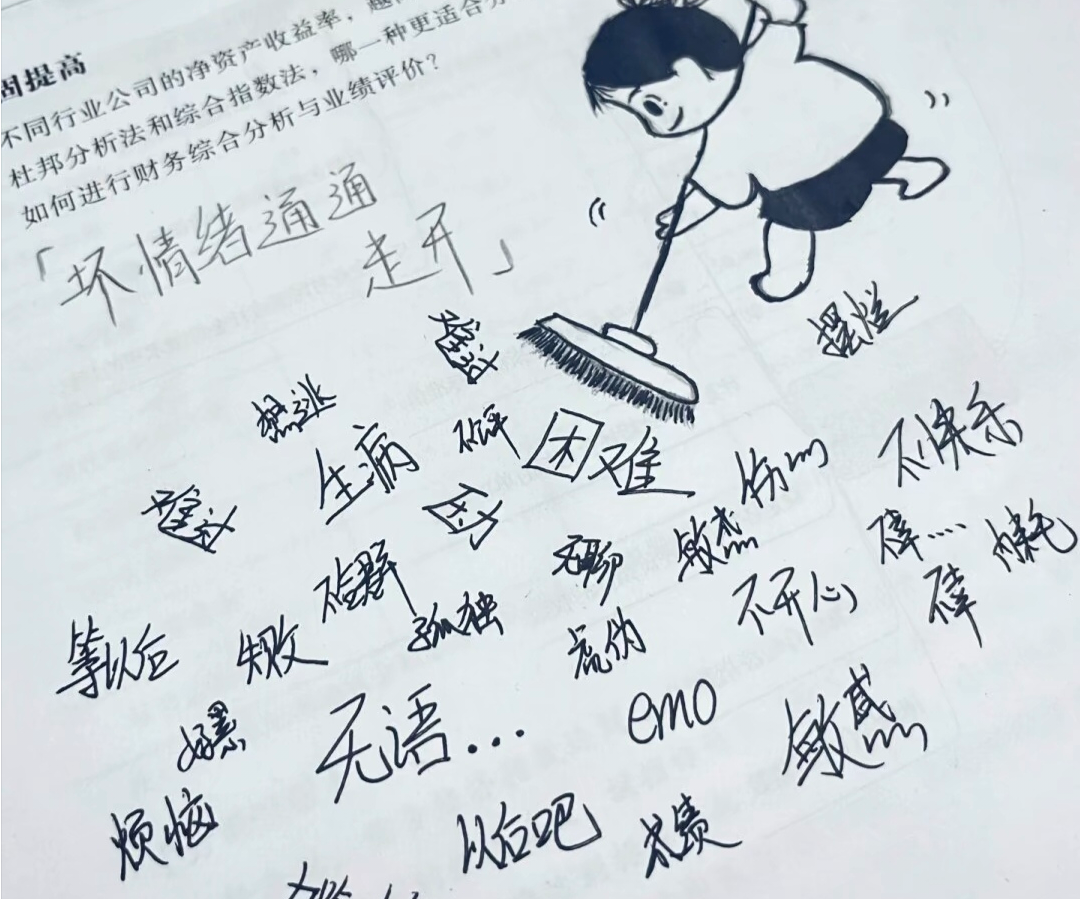 固提高
不同行业公司的净资产收益率,越
杜邦分析法和综合指数法,哪一种更适合
如何进行财务综合分析与业绩评价?
「坏情绪通通
走开」
摆烂
难过
想逃
生病
困难
伤心
不快乐
难过
内耗
无聊
敏感
孤独
不开心
等以后
失败
虚伪
好累
无语...
emo
敏感
烦恼
以后吧
成绩